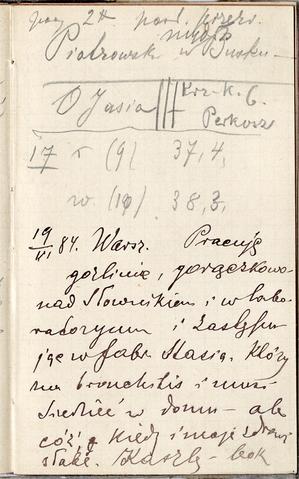 Piotrowsk w Busku –
O Jasia Krz-K. 6.
Perkosz
17 r (9) 37,4,
w. (10) 38,3,
19/VI 84. Warsz. Pracuję
gorliwie, gorączkowo
nad Słownikiem i w labo
ratoryum i zastępu
ję w fabr. Stasia. Który
ma bronchitis i musi
siedzieć w domu – ale
cóż, kiedy i moje zdrowi
słabe. Kaszlę – bok